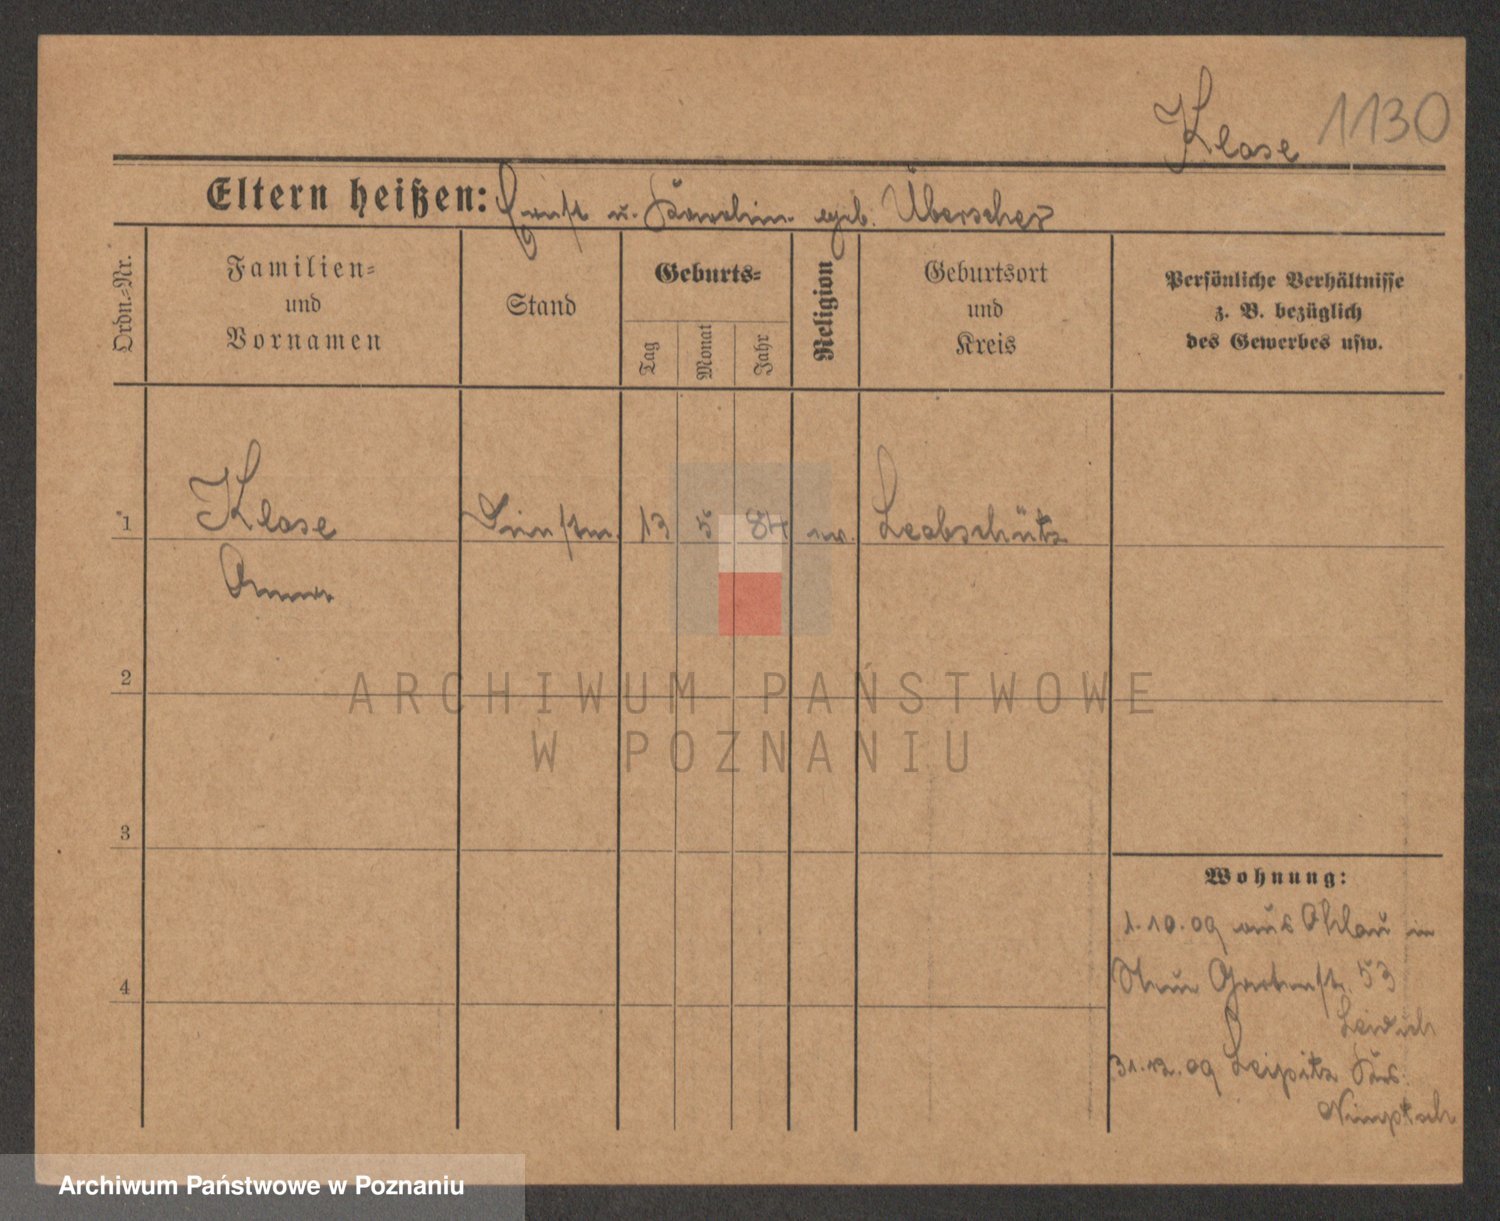 Klose 1130
Eltern heißen: Ernst u. Karolin geb. Überscher
Ordn.-Nr.
Familien-
und
Vornamen
Stand
Geburts-
Tag
Monat
Jahr
Religion
Geburtsort
und
Kreis
Persönliche Verhältnisse
z. B. bezüglich
des Gewerbes usw.
1 Klose 13 5 84 Leobschütz
Anna
2
3
4
Wohnung:
1.10.09 aus Ohlau in
Neue Gartenstr. 53
31.12.09 Leipitz Krs.
Nimptsch
ARCHIWUM PAŃSTWOWE
W POZNANIU
Archiwum Państwowe w Poznaniu